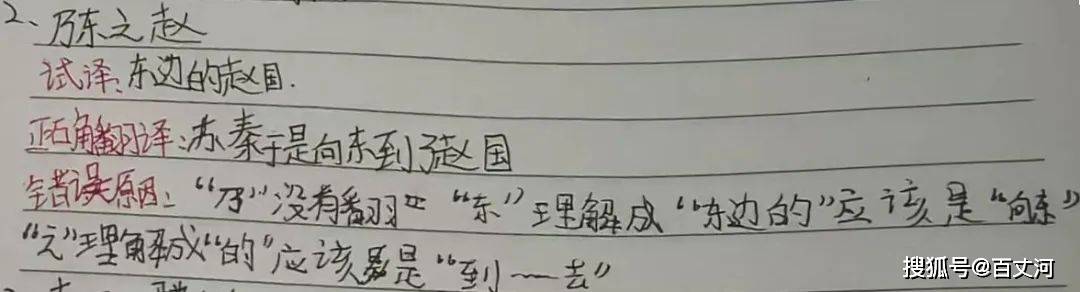 2、乃东之赵
试译:东边的赵国.
正确翻译:苏秦于是向东到了赵国
错误原因:“乃”没有翻译 “东”理解成“东边的”应该是“向东”
“之”理解成“的”应该是“到一去”
搜狐号@百丈河